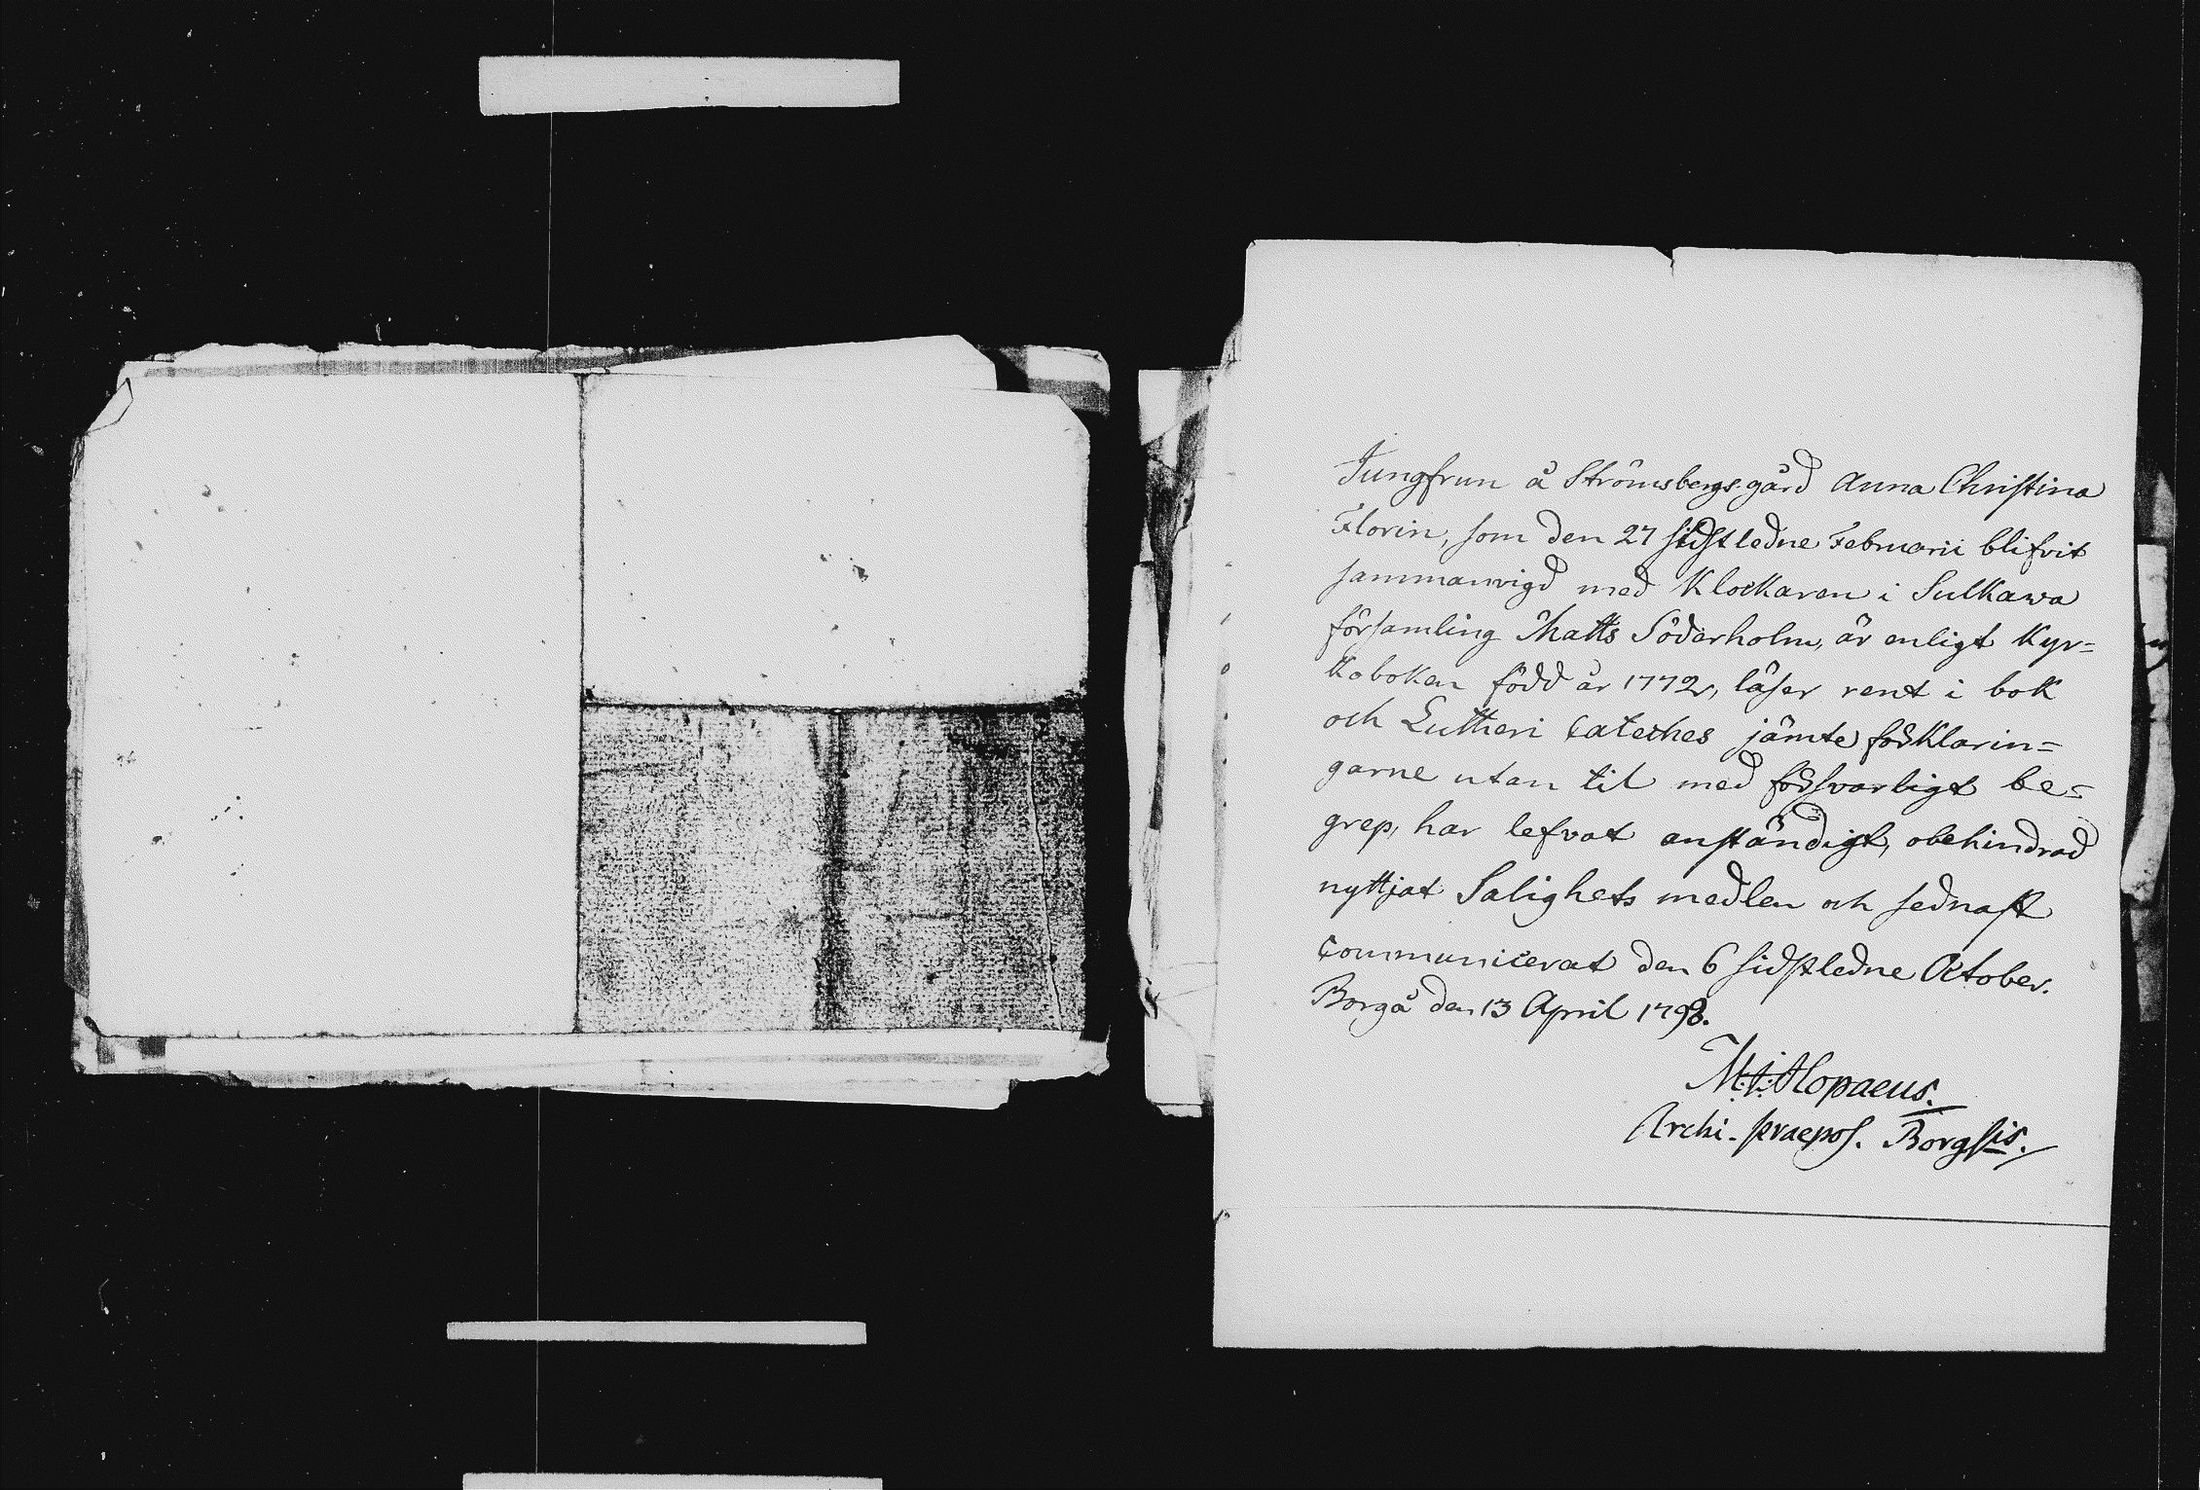 Jungfrun å Strömsbergs gård Anna Christina
Florin, som den 27 sidstledne Februarii blifvit
sammanvigd med Klockaren i Sulkawa
församling Matts Söderholm, är enligt Kyr=
koboken född år 1772, läser rent i bok
och Lutheri Catethes jämte förklarin=
garne utan til med försvarligt be=
grep, har lefvat anständigt, obehindrad
nyttjat Salighets medlen och sednast
communicerat den 6 sidstledne October.
Borgå den 13 April 1798.
M. J. Alopaeus.
Archi-praepos. Borgsis.